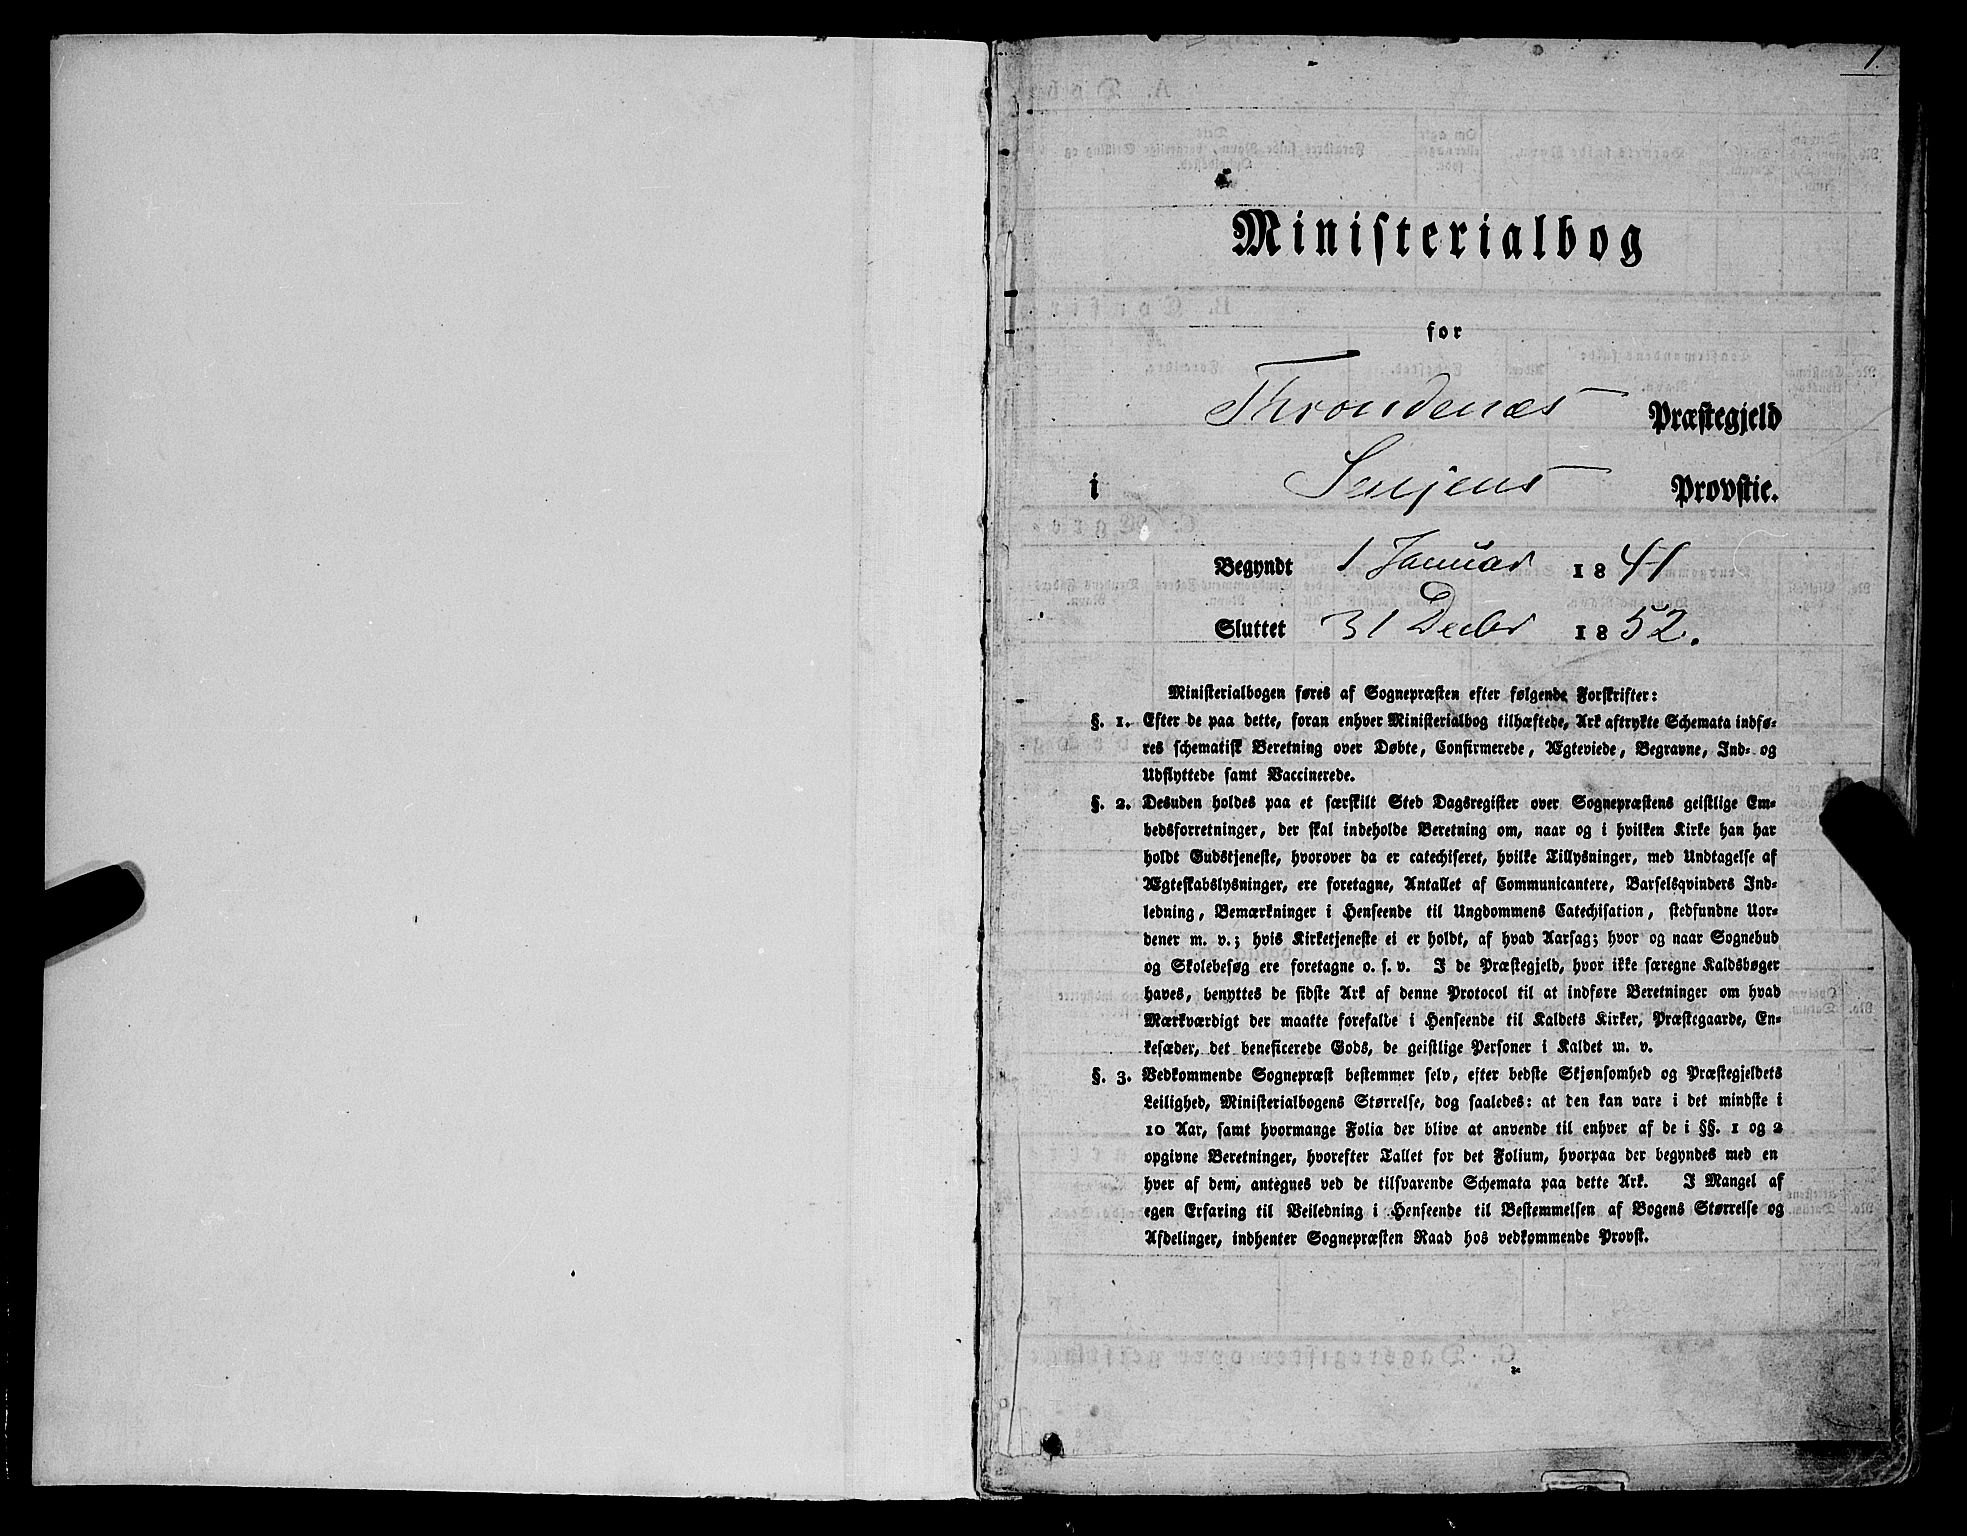 1.
Ministerialbog
for
Throndenæs Præstegjeld
i Senjens Provstie.
Begyndt 1 Januar 1841
Sluttet 31 Decbr 1852.
Ministerialbogen føres af Sognepræsten efter følgende Forskrifter:
§. 1. Efter de paa dette, foran enhver Ministerialbog tilhæftede, Ark aftrykte Schemata indfø-
res schematisk Beretning over Døbte, Confirmerede, Ægteviede, Begravne, Ind- og
Udflyttede samt Vaccinerede.
§. 2. Desuden holdes paa et særskilt Sted Dagsregister over Sognepræstens geistlige Em-
bedsforretninger, der skal indeholde Beretning om, naar og i hvilken Kirke han har
holdt Gudstjeneste, hvorover da er catechiseret, hvilke Tillysninger, med Undtagelse af
Ægteskabslysninger, ere foretagne, Antallet af Communicantere, Barselsqvinders Ind-
ledning, Bemærkninger i Henseende til Ungdommens Catechisation, stedfundne Uor-
dener m. v.; hvis Kirketjeneste ei er holdt, af hvad Aarsag; hvor og naar Sognebud
og Skolebesøg ere foretagne o. s. v. I de Præstegjeld, hvor ikke særegne Kaldsbøger
haves, benyttes de sidste Ark af denne Protocol til at indføre Beretninger om hvad
Mærkværdigt der maatte forefalde i Henseende til Kaldets Kirker, Præstegaarde, En-
kesæder, det beneficerede Gods, de geistlige Personer i Kaldet m. v.
§. 3. Vedkommende Sognepræst bestemmer selv, efter bedste Skjønsomhed og Præstegjeldets
Leilighed, Ministerialbogens Størrelse, dog saaledes: at den kan vare i det mindste i
10 Aar, samt hvormange Folia der blive at anvende til enhver af de i §§. 1 og 2
opgivne Beretninger, hvorefter Tallet for det Folium, hvorpaa der begyndes med en
hver af dem, antegnes ved de tilsvarende Schemata paa dette Ark. I Mangel af
egen Erfaring til Veiledning i Henseende til Bestemmelsen af Bogens Størrelse og
Afdelinger, indhenter Sognepræsten Raad hos vedkommende Provst.